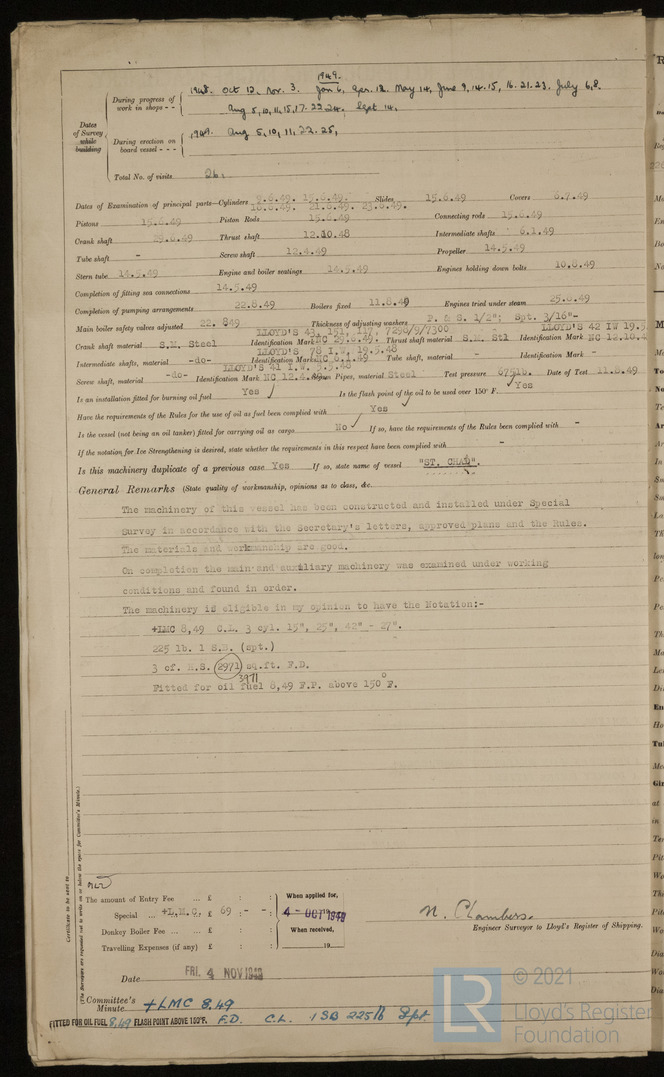 1949.
1948. Oct 12, Nov. 3. Jan 6, Apr. 12. May 14, June 9, 14. 15, 16. 21. 23. July 6, 8.
During progress of work in shops - -
Aug 5, 10, 11, 15, 17. 22 24. Sept 14.
Dates of Survey while building
During erection on board vessel - - -
1949. Aug 5, 10, 11, 22. 25,
Total No. of visits 26.
Dates of Examination of principal parts—Cylinders 9.6.49. 15.6.49. Slides 15.6.49 Covers 6.7.49
16.6.49. 21.6.49. 23.6.49.
Pistons 15.6.49 Piston Rods 15.6.49 Connecting rods 15.6.49
Crank shaft 29.6.49 Thrust shaft 12.10.48 Intermediate shafts 6.1.49
Tube shaft - Screw shaft 12.4.49 Propeller 14.5.49
Stern tube 14.5.49 Engine and boiler seatings 14.5.49 Engines holding down bolts 10.8.49
Completion of fitting sea connections 14.5.49
Completion of pumping arrangements 22.8.49 Boilers fixed 11.8.49 Engines tried under steam 25.8.49
Main boiler safety valves adjusted 22. 849 Thickness of adjusting washers P. & S. 1/2"; Spt. 3/16"-
LLOYD'S 43, 151, 117, 7290/9/7300 LLOYD'S 42 IW 19.5
Crank shaft material S.M. Steel Identification Mark NC 29.6.49. Thrust shaft material S.M. Stl Identification Mark NC 12.10.4
LLOYD'S 78 I.W. 19.5.48
Intermediate shafts, material -do- Identification Mark NC 6.1.49 Tube shaft, material - Identification Mark -
LLOYD'S 41 I.W. 5.5.48
Screw shaft, material -do- Identification Mark NC 12.4.49 Steam Pipes, material Steel Test pressure 675lb. Date of Test 11.8.49
Is an installation fitted for burning oil fuel Yes Is the flash point of the oil to be used over 150° F. Yes
Have the requirements of the Rules for the use of oil as fuel been complied with Yes
Is the vessel (not being an oil tanker) fitted for carrying oil as cargo No If so, have the requirements of the Rules been complied with -
If the notation for Ice Strengthening is desired, state whether the requirements in this respect have been complied with -
Is this machinery duplicate of a previous case Yes If so, state name of vessel "ST. CHAD".
General Remarks (State quality of workmanship, opinions as to class, &c.
The machinery of this vessel has been constructed and installed under Special
Survey in accordance with the Secretary's letters, approved plans and the Rules.
The materials and workmanship are good.
On completion the main and auxiliary machinery was examined under working
conditions and found in order.
The machinery is eligible in my opinion to have the Notation:-
+LMC 8,49 C.L. 3 cyl. 15", 25", 42" - 27".
225 lb. 1 S.B. (spt.)
3 cf. H.S. 2971 sq.ft. F.D.
3971
Fitted for oil fuel 8,49 F.P. above 150°F.
Certificate to be sent to
(The Surveyors are requested not to write on or below the space for Committee's Minute.)
The amount of Entry Fee ... £ : :
Special ... +L.M.C. £ 69 : - : -
Donkey Boiler Fee ... ... £ : :
Travelling Expenses (if any) £ : :
When applied for,
4 - OCT 1949
When received,
19
N. Chambers.
Engineer Surveyor to Lloyd's Register of Shipping.
Date FRI. 4 NOV 1949
Committee's Minute +LMC 8.49
FITTED FOR OIL FUEL 8,49 FLASH POINT ABOVE 150°F. F.D. C.L. 1 SB 225 lb Spt.
LR © 2021
Lloyd's Register
Foundation